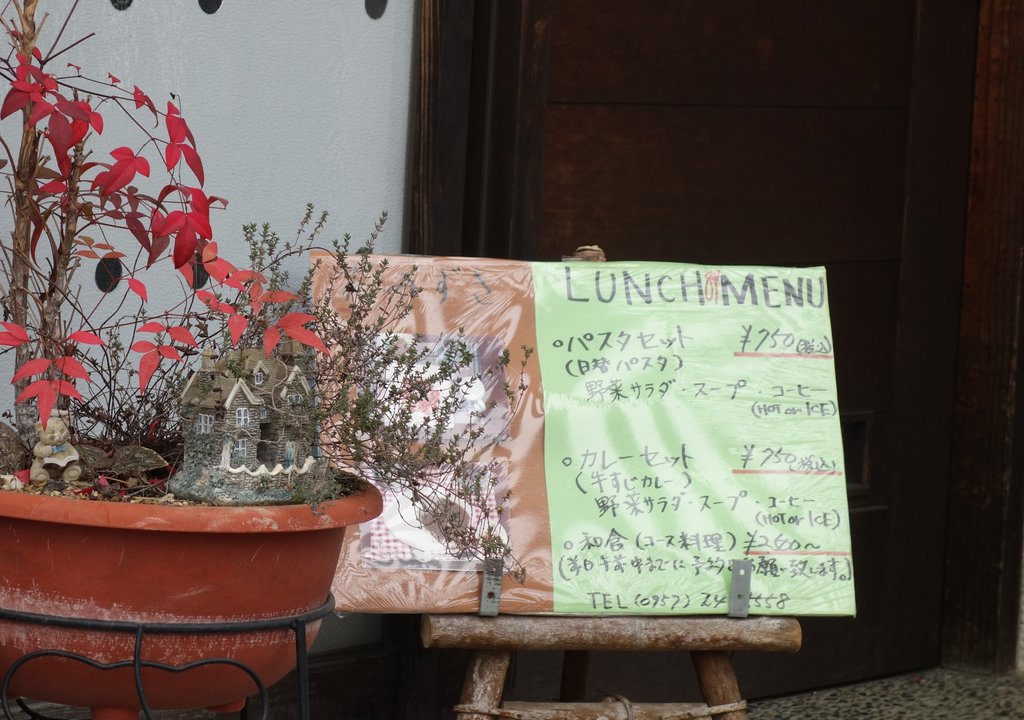 みずき
LUNCH MENU
○パスタセット ¥750(税込)
(日替パスタ)
野菜サラダ・スープ・コーヒー
(HOT or ICE)
○カレーセット ¥750(税込)
(牛すじカレー)
野菜サラダ・スープ・コーヒー
(HOT or ICE)
○和食(コース料理)
(前日午前中までに予約お願い致します。)
TEL (0957)